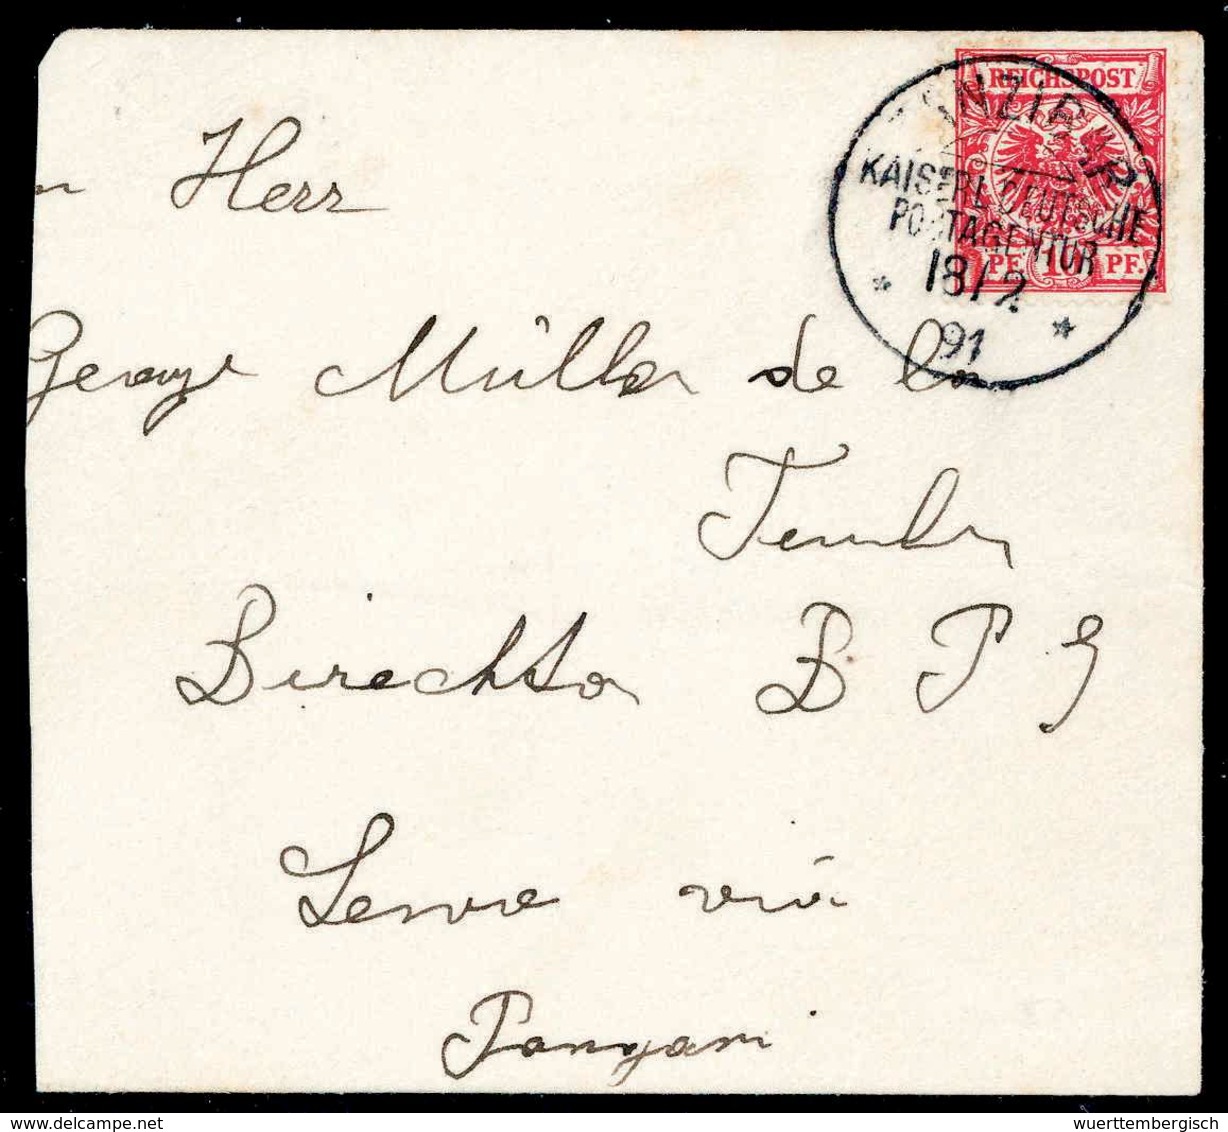 REICHSPOST
PF 10 PF.
ZANZIBAR
KAISERL. DEUTSCHE
POSTAGENTUR
18/2
91
n Herr
George Müller de la
B P G
Lewa via
Pangani
delcampe.net
wuerttembergisch